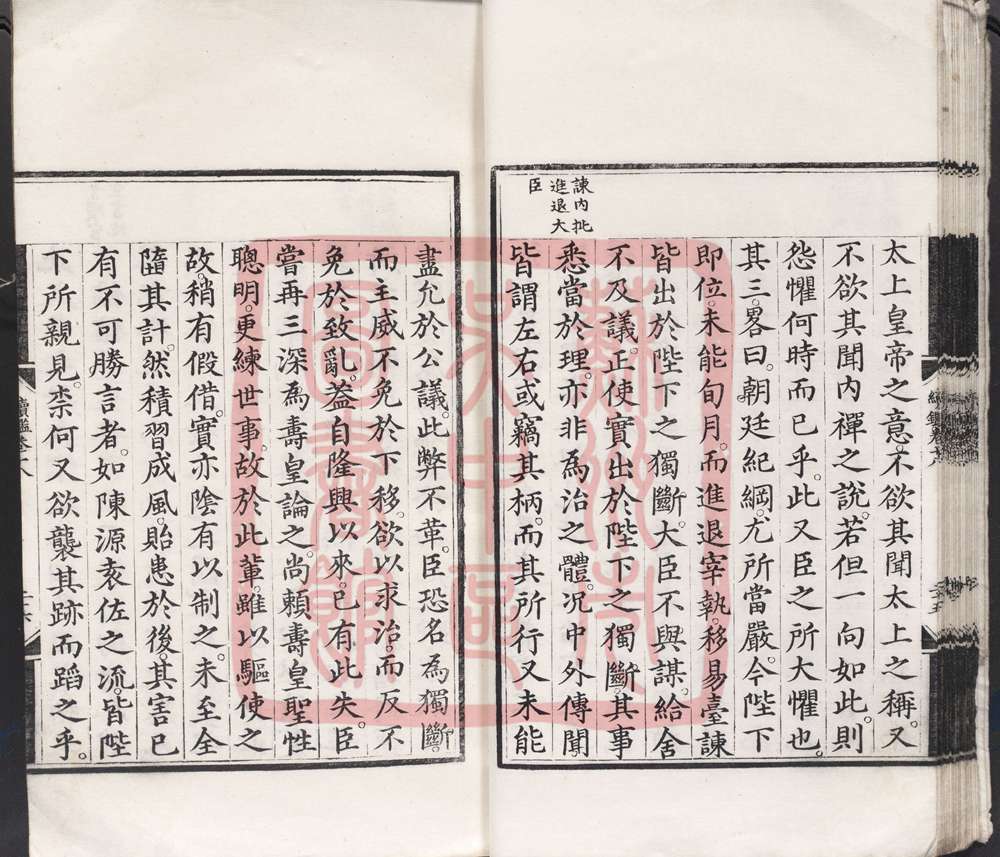 諫內批
進退大
臣
太上皇帝之意不欲其聞太上之稱又
不欲其聞內禪之說若但一向如此則
怨懼何時而已乎此又臣之所大懼也
其三畧曰朝廷紀綱尤所當嚴今陛下
即位未能旬月而進退宰執移易臺諫
皆出於陛下之獨斷大臣不與謀給舍
不及議正使實出於陛下之獨斷其事
悉當於理亦非為治之體况中外傳聞
皆謂左右或竊其柄而其所行又未能
盡允於公議此弊不革臣恐名為獨斷
而主威不免於下移欲以求治而反不
免於致亂葢自隆興以來已有此失臣
嘗再三深為壽皇論之尚賴壽皇聖性
聰明更練世事故於此輩雖以驅使之
故稍有假借實亦陰有以制之未至全
隨其計然積習成風貽患於後其害已
有不可勝言者如陳源袁佐之流皆陛
下所親見柰何又欲襲其跡而蹈之乎